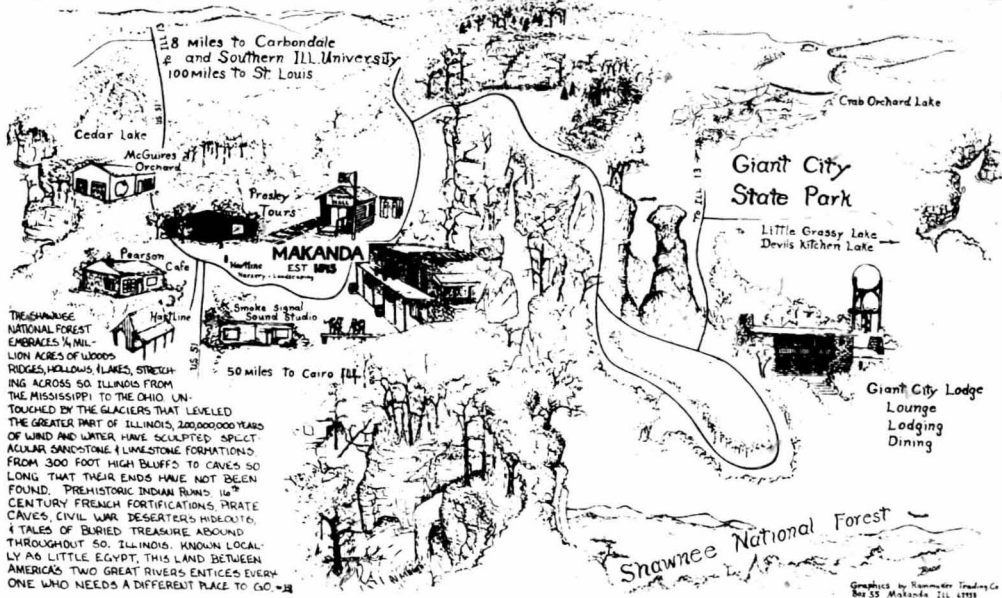 TO ILL 13
8 Miles to Carbondale
and Southern ILL. University
100 Miles to St. Louis
Crab Orchard Lake
Cedar Lake
McGuires
Orchard
Presley
Tours
TOWN
HALL
Giant City
State Park
TO ILL 13
To
Little Grassy Lake
Devils Kitchen Lake
MAKANDA
EST
Hartline
Nursery & Landscaping
Pearson
Cafe
HartLine
Smoke Signal
Sound Studio
US 51
50 Miles to Cairo ILL
Giant City Lodge
Lounge
Lodging
Dining
THE SHAWNEE
NATIONAL FOREST
EMBRACES 1/4 MIL-
LION ACRES OF WOODS
RIDGES, HOLLOWS, & LAKES, STRETCH
ING ACROSS SO. ILLINOIS FROM
THE MISSISSIPPI TO THE OHIO. UN-
TOUCHED BY THE GLACIERS THAT LEVELED
THE GREATER PART OF ILLINOIS, 200,000,000 YEARS
OF WIND AND WATER HAVE SCULPTED SPECT-
ACULAR SANDSTONE & LIMESTONE FORMATIONS.
FROM 300 FOOT HIGH BLUFFS TO CAVES SO
LONG THAT THEIR ENDS HAVE NOT BEEN
FOUND. PREHISTORIC INDIAN RUINS, 16TH
CENTURY FRENCH FORTIFICATIONS, PIRATE
CAVES, CIVIL WAR DESERTERS HIDEOUTS,
& TALES OF BURIED TREASURE ABOUND
THROUGHOUT SO. ILLINOIS. KNOWN LOCAL-
LY AS LITTLE EGYPT, THIS LAND BETWEEN
AMERICA'S TWO GREAT RIVERS ENTICES EVERY
ONE WHO NEEDS A DIFFERENT PLACE TO GO.
Shawnee National Forest
Graphics by Rainmaker Trading Co
Box 55 Makanda ILL 62958